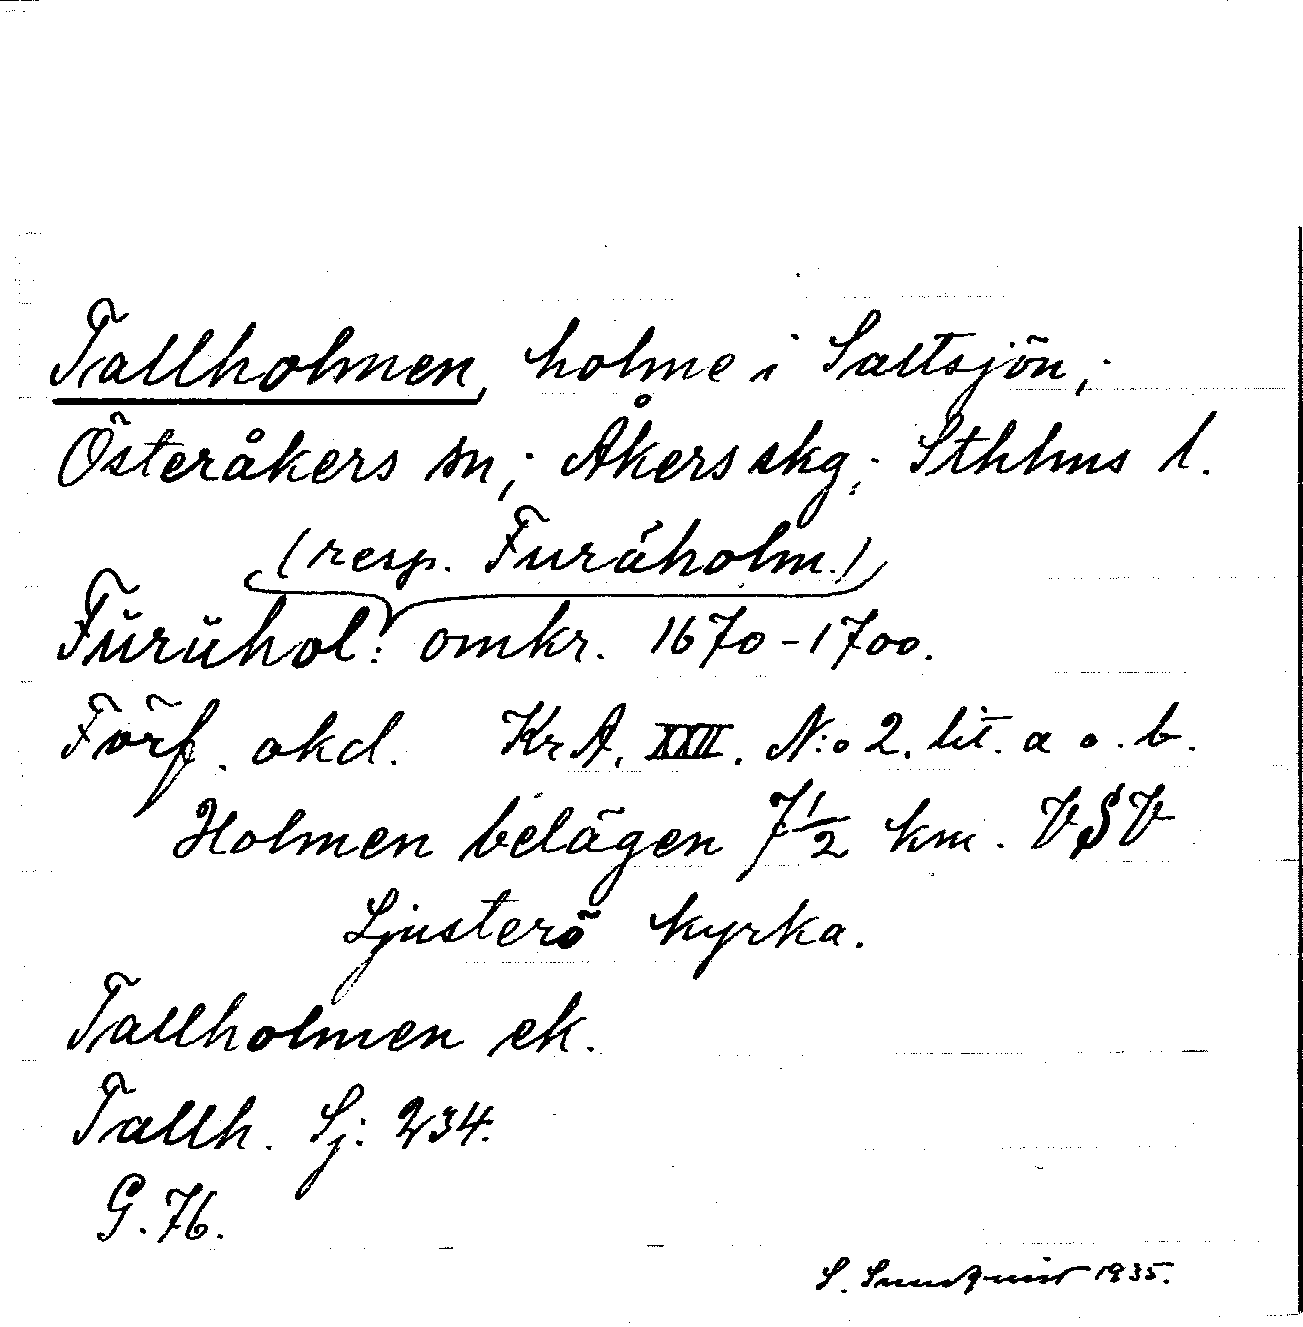 Tallholmen, holme i Saltsjön;
Österåkers sn; Åkers skg; Sthlms l.
(resp. Furåholm.)
Fŭrŭhol: omkr. 1670-1700.
Förf. okd. KrA. XXII. N:o 2. lit. a o. b.
Holmen belägen 7 1/2 km. VSV
Ljusterö kyrka.
Tallholmen ek.
Tallh. Sj: 234.
G. 76.
S. Sundquist 1935.